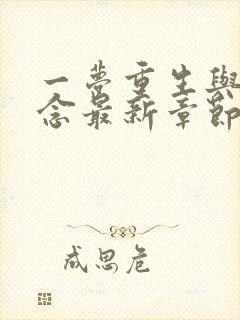 一夢重生與
念最新章節
成思危